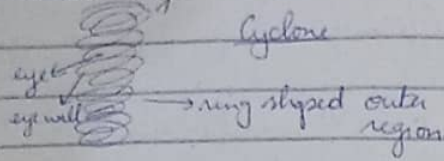 Cyclone
eye
eye wall
→ ring shaped outer
region